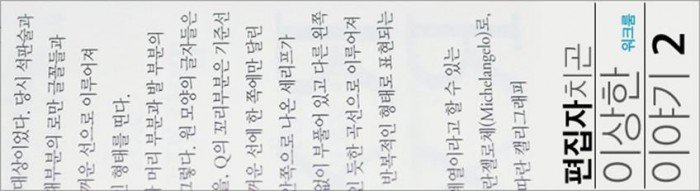 대상이었다. 당시 석판술과
대부분의 로만 글꼴들과
까운 선으로 이루어져
형태를 띤다.
머리 부분과 발 부분의
그렇다. 원 모양의 글자들은
을, Q의 꼬리부분은 기준선
까운 선에 한 쪽에만 달린
안쪽으로 나온 세리프가
없이 부풀어 있고 다른 왼쪽
듯한 곡선으로 이루어져
반복적인 형태로 표현되는
계열이라고 할 수 있는
란젤로체(Michelangelo)로,
따란 캘리그래피
편집자치고
이상한 워크룸
이야기 2